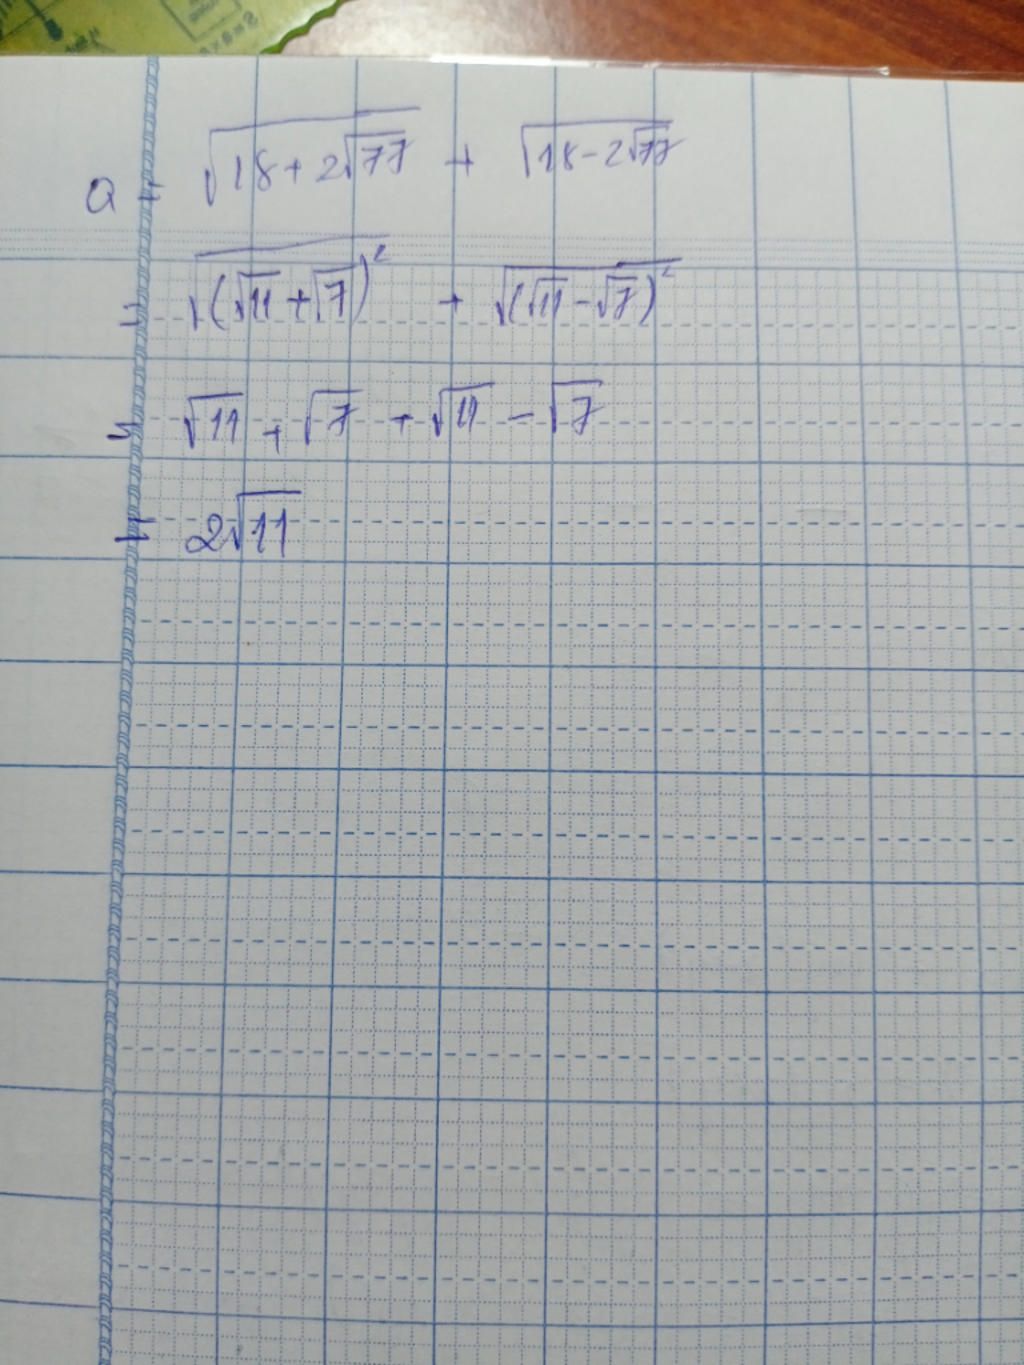 Q = √(18 + 2√77) + √(18 - 2√77)
= √((√11 + √7)²) + √((√11 - √7)²)
= √11 + √7 + √11 - √7
= 2√11